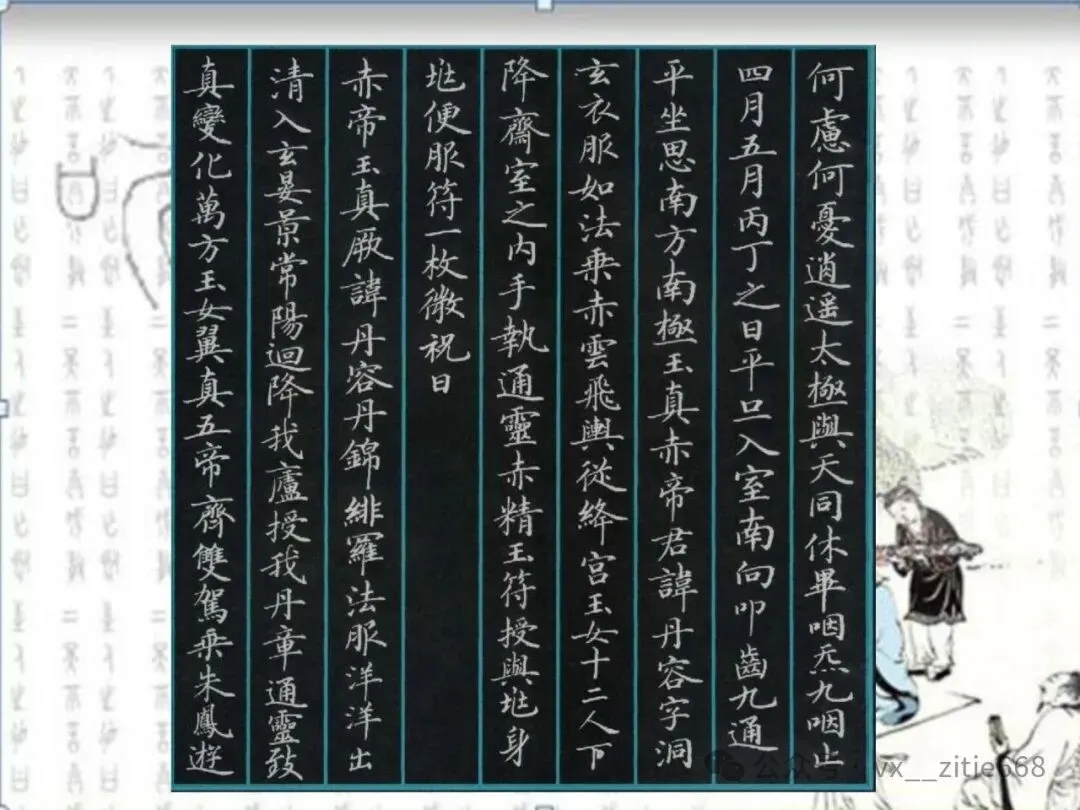 何慮何憂逍遥太極與天同休畢咽炁九咽止
四月五月丙丁之日平旦入室南向叩齒九通
平坐思南方南極玉真赤帝君諱丹容字洞
玄衣服如法乗赤雲飛輿從絳宫玉女十二人下
降齋室之内手執通靈赤精玉符授與兆身
兆便服符一枚微祝曰
赤帝玉真厥諱丹容丹錦緋羅法服洋洋出
清入玄晏景常陽迴降我廬授我丹章通靈致
真變化萬方玉女翼真五帝齊雙駕乗朱鳳遊
公众号·vx__zitie668